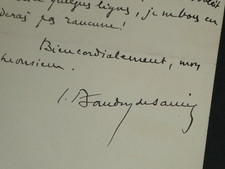 quelques lignes, je
pas rancune!
Bien cordialement, mon
Monsieur.
L. Baudry de Saunier